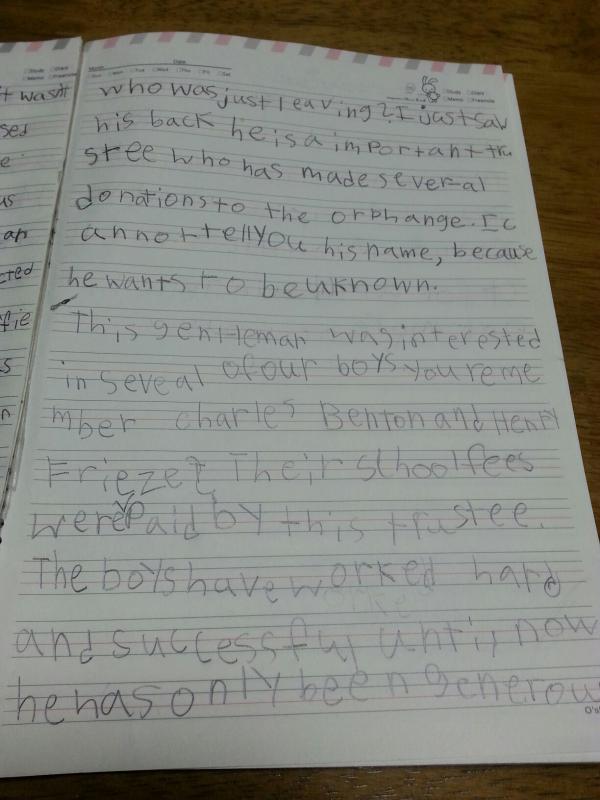 t wasn't
sed
e
us
an
cted
s
n
Date
who was just leaving? I just saw
his back he is a important tru
stee who has made several
donations to the orphange. I c
annot tell you his name, because
he wants to be uknown.
This gentleman was interested
in seveal of our boys you reme
mber charles Benton and Henry
Frieze? Their school fees
were paid by this trustee.
The boys have worked hard
and successful until now
he has only been generou